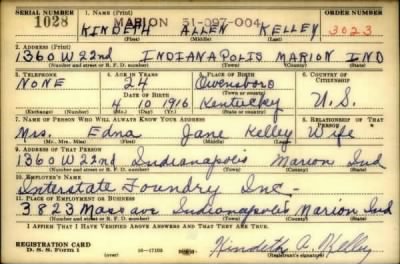 SERIAL NUMBER 1. NAME (Print) ORDER NUMBER
1028 MARION 51-097-004
KINDETH ALLEN KELLEY 3023
(First) (Middle) (Last)
2. ADDRESS (Print)
1360 W 22nd INDIANAPOLIS MARION IND
(Number and street or R. F. D. number) (Town) (County) (State)
3. TELEPHONE 4. AGE IN YEARS 5. PLACE OF BIRTH 6. COUNTRY OF CITIZENSHIP
NONE 24 Owensboro
DATE OF BIRTH (Town)
4 10 1916 Kentucky U.S.
(Exchange) (Number) (Mo.) (Day) (Yr.) (State or country)
7. NAME OF PERSON WHO WILL ALWAYS KNOW YOUR ADDRESS 8. RELATIONSHIP OF THAT PERSON
Mrs. Edna Jane Kelley Wife
(Mr., Mrs., Miss) (First) (Middle) (Last)
9. ADDRESS OF THAT PERSON
1360 W 22nd Indianapolis Marion Ind
(Number and street or R. F. D. number) (Town) (County) (State)
10. EMPLOYER'S NAME
Interstate Foundry Inc-
11. PLACE OF EMPLOYMENT OR BUSINESS
3823 Mass ave Indianapolis Marion Ind
(Number and street or R. F. D. number) (Town) (County) (State)
I AFFIRM THAT I HAVE VERIFIED ABOVE ANSWERS AND THAT THEY ARE TRUE.
REGISTRATION CARD
D. S. S. FORM 1 16-17105 Kindeth A. Kelley
(Registrant's signature)